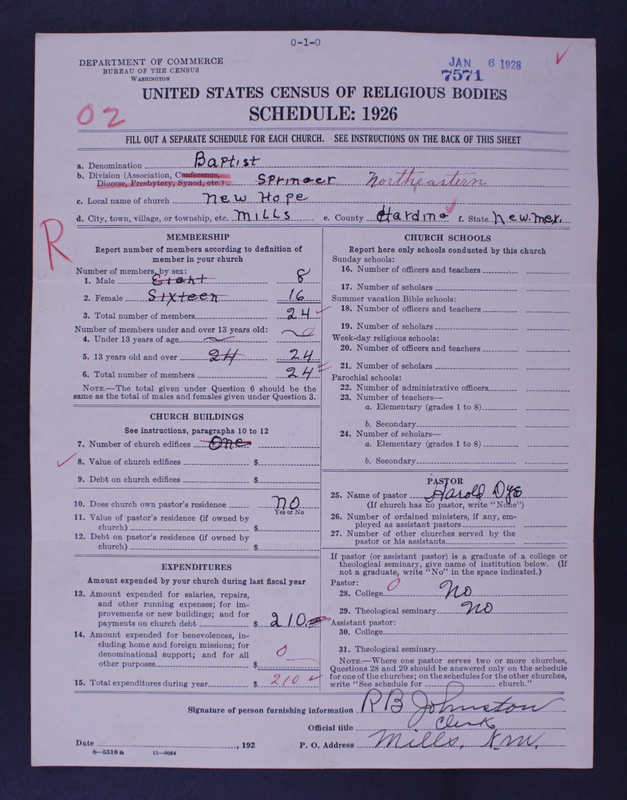 0-1-0
DEPARTMENT OF COMMERCE
BUREAU OF THE CENSUS
WASHINGTON
JAN 6 1928
7571
UNITED STATES CENSUS OF RELIGIOUS BODIES
SCHEDULE: 1926
O2
FILL OUT A SEPARATE SCHEDULE FOR EACH CHURCH. SEE INSTRUCTIONS ON THE BACK OF THIS SHEET
a. Denomination Baptist
b. Division (Association, Conference,
Diocese, Presbytery, Synod, etc.) Springer Northeastern
c. Local name of church New Hope
d. City, town, village, or township, etc. Mills e. County Harding f. State New.Mex.
R
MEMBERSHIP
Report number of members according to definition of
member in your church
Number of members by sex:
1. Male Eight 8
2. Female Sixteen 16
3. Total number of members 24
Number of members under and over 13 years old:
4. Under 13 years of age 0
5. 13 years old and over 24 24
6. Total number of members 24
NOTE.—The total given under Question 6 should be the
same as the total of males and females given under Question 3.
CHURCH BUILDINGS
See instructions, paragraphs 10 to 12
7. Number of church edifices One
8. Value of church edifices $
9. Debt on church edifices $
10. Does church own pastor's residence no
Yes or No
11. Value of pastor's residence (if owned by
church) $
12. Debt on pastor's residence (if owned by
church) $
EXPENDITURES
Amount expended by your church during last fiscal year
13. Amount expended for salaries, repairs,
and other running expenses; for im-
provements or new buildings; and for
payments on church debt $ 210
14. Amount expended for benevolences, in-
cluding home and foreign missions; for
denominational support; and for all
other purposes $ 0
15. Total expenditures during year $ 210
CHURCH SCHOOLS
Report here only schools conducted by this church
Sunday schools:
16. Number of officers and teachers
17. Number of scholars
Summer vacation Bible schools:
18. Number of officers and teachers
19. Number of scholars
Week-day religious schools:
20. Number of officers and teachers
21. Number of scholars
Parochial schools:
22. Number of administrative officers
23. Number of teachers—
a. Elementary (grades 1 to 8)
b. Secondary
24. Number of scholars—
a. Elementary (grades 1 to 8)
b. Secondary
PASTOR
25. Name of pastor Harold Dye
(If church has no pastor, write "None")
26. Number of ordained ministers, if any, em-
ployed as assistant pastors
27. Number of other churches served by the
pastor or his assistants
If pastor (or assistant pastor) is a graduate of a college or
theological seminary, give name of institution below. (If
not a graduate, write "No" in the space indicated.)
Pastor:
28. College 0 No
29. Theological seminary No
Assistant pastor:
30. College
31. Theological seminary
NOTE.—Where one pastor serves two or more churches,
Questions 28 and 29 should be answered only on the schedule
for one of the churches; on the schedules for the other churches,
write "See schedule for church."
Signature of person furnishing information RB Johnston
Official title Clerk
Date , 192 P. O. Address Mills, N.M.
8—5518 a 11—9034